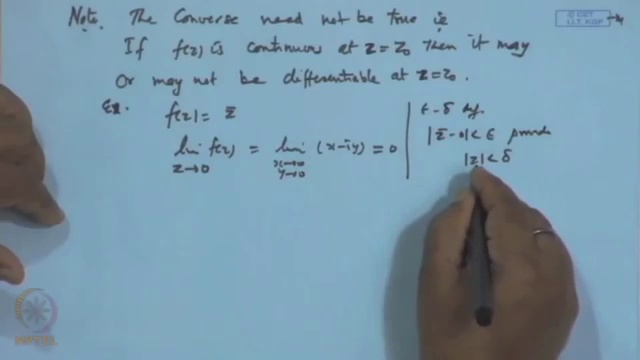 Note. The Converse need not be true ie
If f(z) is continuous at z=z₀ Then it may
Or may not be differentiable at z=z₀.
Ex. f(z) = z̄
lim f(z) = lim (x-iy) = 0
z→0 x→0
y→0
ε-δ def.
|z̄-0|<ε provide
|z|<δ
© CET
I.I.T. KGP
NPTEL